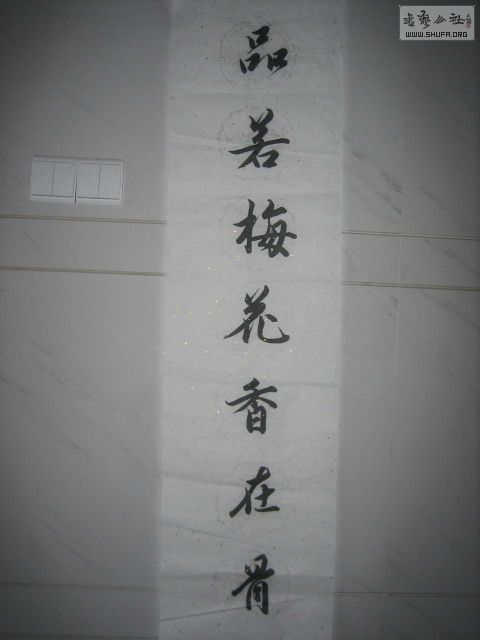 品若梅花香在骨
書艺公社
WWW.SHUFA.ORG